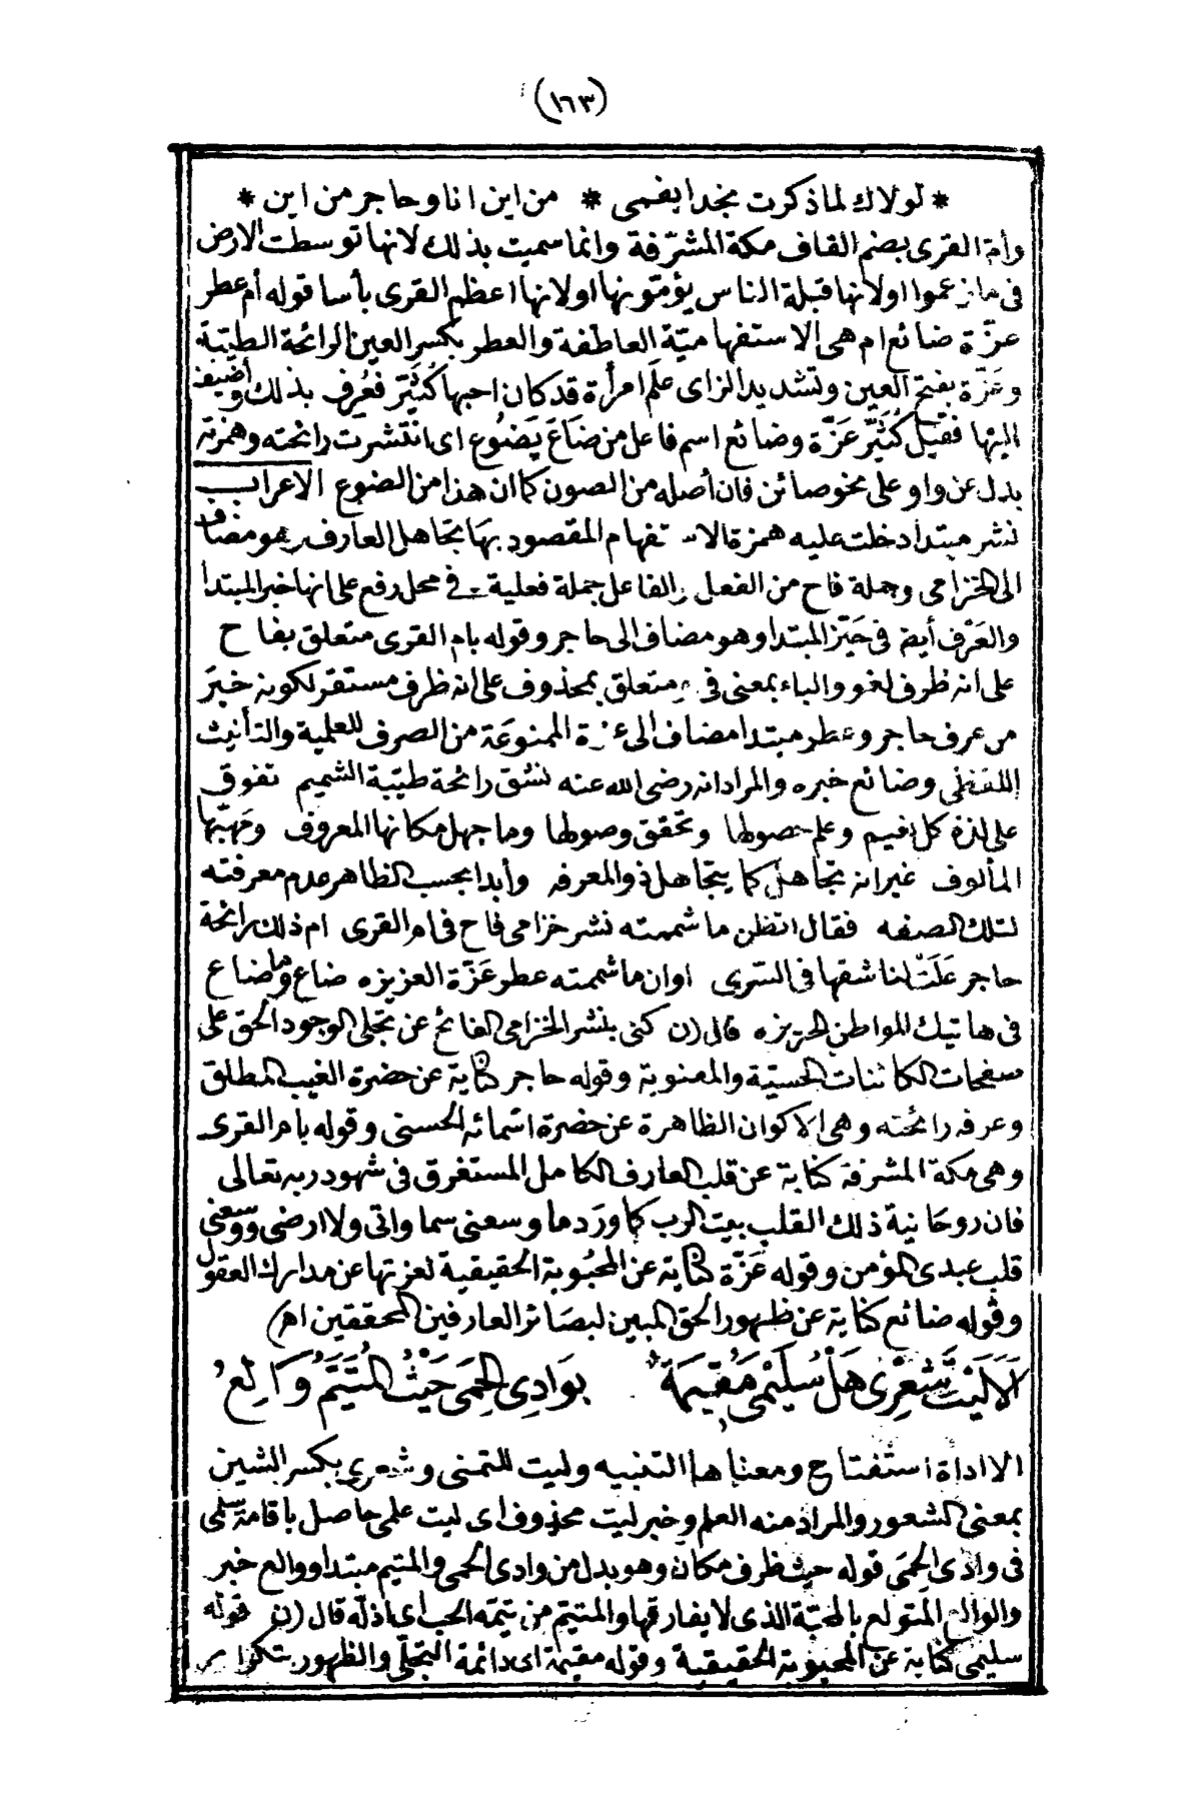 (١٦٣)
* لولاك لما ذكرت نجدا بفمى * من اين انا وحاجر من اين *
وأم القرى بضم القاف مكة المشرّفة وانما سميت بذلك لانها توسطت الارض
فى مازعموا اولانها قبلة الناس يؤمّونها اولانها اعظم القرى بأسا قوله أم عطر
عزّة ضائع ام هى الاستفهاميّة العاطفة والعطر بكسر العين الرائحة الطيّبة
وعَزّة بفتح العين وتشديد الزاى علم امرأة قد كان احبها كُثَيّر فعُرف بذلك وأضيف
اليها فقيل كُثَيّر عَزّة وضائع اسم فاعل من ضَاعَ يَضُوع اى انتشرت رائحته وهمزته
بدل عن واو على نحو صائن فان أصله من الصون كما ان هذا من الضوع الاعراب
نشر مبتدا دخلت عليه همزة الاستفهام المقصود بها تجاهل العارف وهو مضاف
الى الخزامى وجملة فاح من الفعل والفاعل جملة فعلية فى محل رفع على انها خبر المبتدا
والعَرْف أيضا فى حَيّز المبتدا وهو مضاف الى حاجر وقوله بام القرى متعلق بفاح
على انه ظرف لغو والباء بمعنى فى متعلق بمحذوف على انه ظرف مستقر لكونه خبرَ
من عرف حاجر وعطر مبتدا مضاف الى عزة الممنوعَة من الصرف للعلمية والتأنيث
اللفظى وضائع خبره والمراد انه رضى الله عنه نشق رائحة طيّبة الشميم تفوق
على لذة كل نعيم وعلم حصولها وتحقق وصولها وما جهل مكانها المعروف ومَهبّها
المألوف غير انه تجاهل كما يتجاهل ذو المعرفه وأبدا بحسب الظاهر عدم معرفته
لتلك الصفه فقال اتظن ما شممته نشر خزامى فاح فى ام القرى ام ذلك رائحة
حاجر عَلَتْ لناشقها فى السّرى اوان ما شممته عطر عَزّة العزيزه ضاع وما ضاع
فى هاتيك المواطن الحريزه قال (ن كنى بنشر الخزامى الفائح عن تجلى الوجود الحق على
صفحات الكائنات الحسيّة والمعنوية وقوله حاجر كناية عن حضرة الغيب المطلق
وعرفه رائحته وهى الاكوان الظاهرة عن حضرة اسمائه الحسنى وقوله بام القرى
وهى مكة المشرفة كناية عن قلب العارف الكامل المستغرق فى شهود ربه تعالى
فان روحانية ذلك القلب بيت الرب كما ورَد ما وسعنى سماواتى ولا ارضى ووسعنى
قلب عبدى المؤمن وقوله عَزّة كناية عن المحبُوبة الحقيقية لعزتها عن مدارك العقول
وقوله ضائع كناية عن ظهور الحق المبين لبصَائر العارفين المحققين اه)
أَلاَ لَيْتَ شِعْرِى هَلْ سُلَيْمَى مُقِيمَةٌ بوَادِى الحِمَى حَيْثُ المُتَيَّمُ وَالِعُ
الا اداة استفتاح ومعناها التنبيه وليت للتمنى وشعرى بكسر الشين
بمعنى الشعور والمراد منه العلم وخبر ليت محذوف اى ليت علمى حاصل باقامة سلمى
فى وادى الحِمَى قوله حيث ظرف مكان وهو بدل من وادى الحمى والمتيم مبتدا ووالع خبر
والوالع المتولع بالمحبّة الذى لا يفارقها والمتيّم من تيمّه الحب اى اذلّه قال (ن قوله
سليمى كناية عن المحبوبة الحقيقية وقوله مقيمة اى دائمة التجلّى والظهور